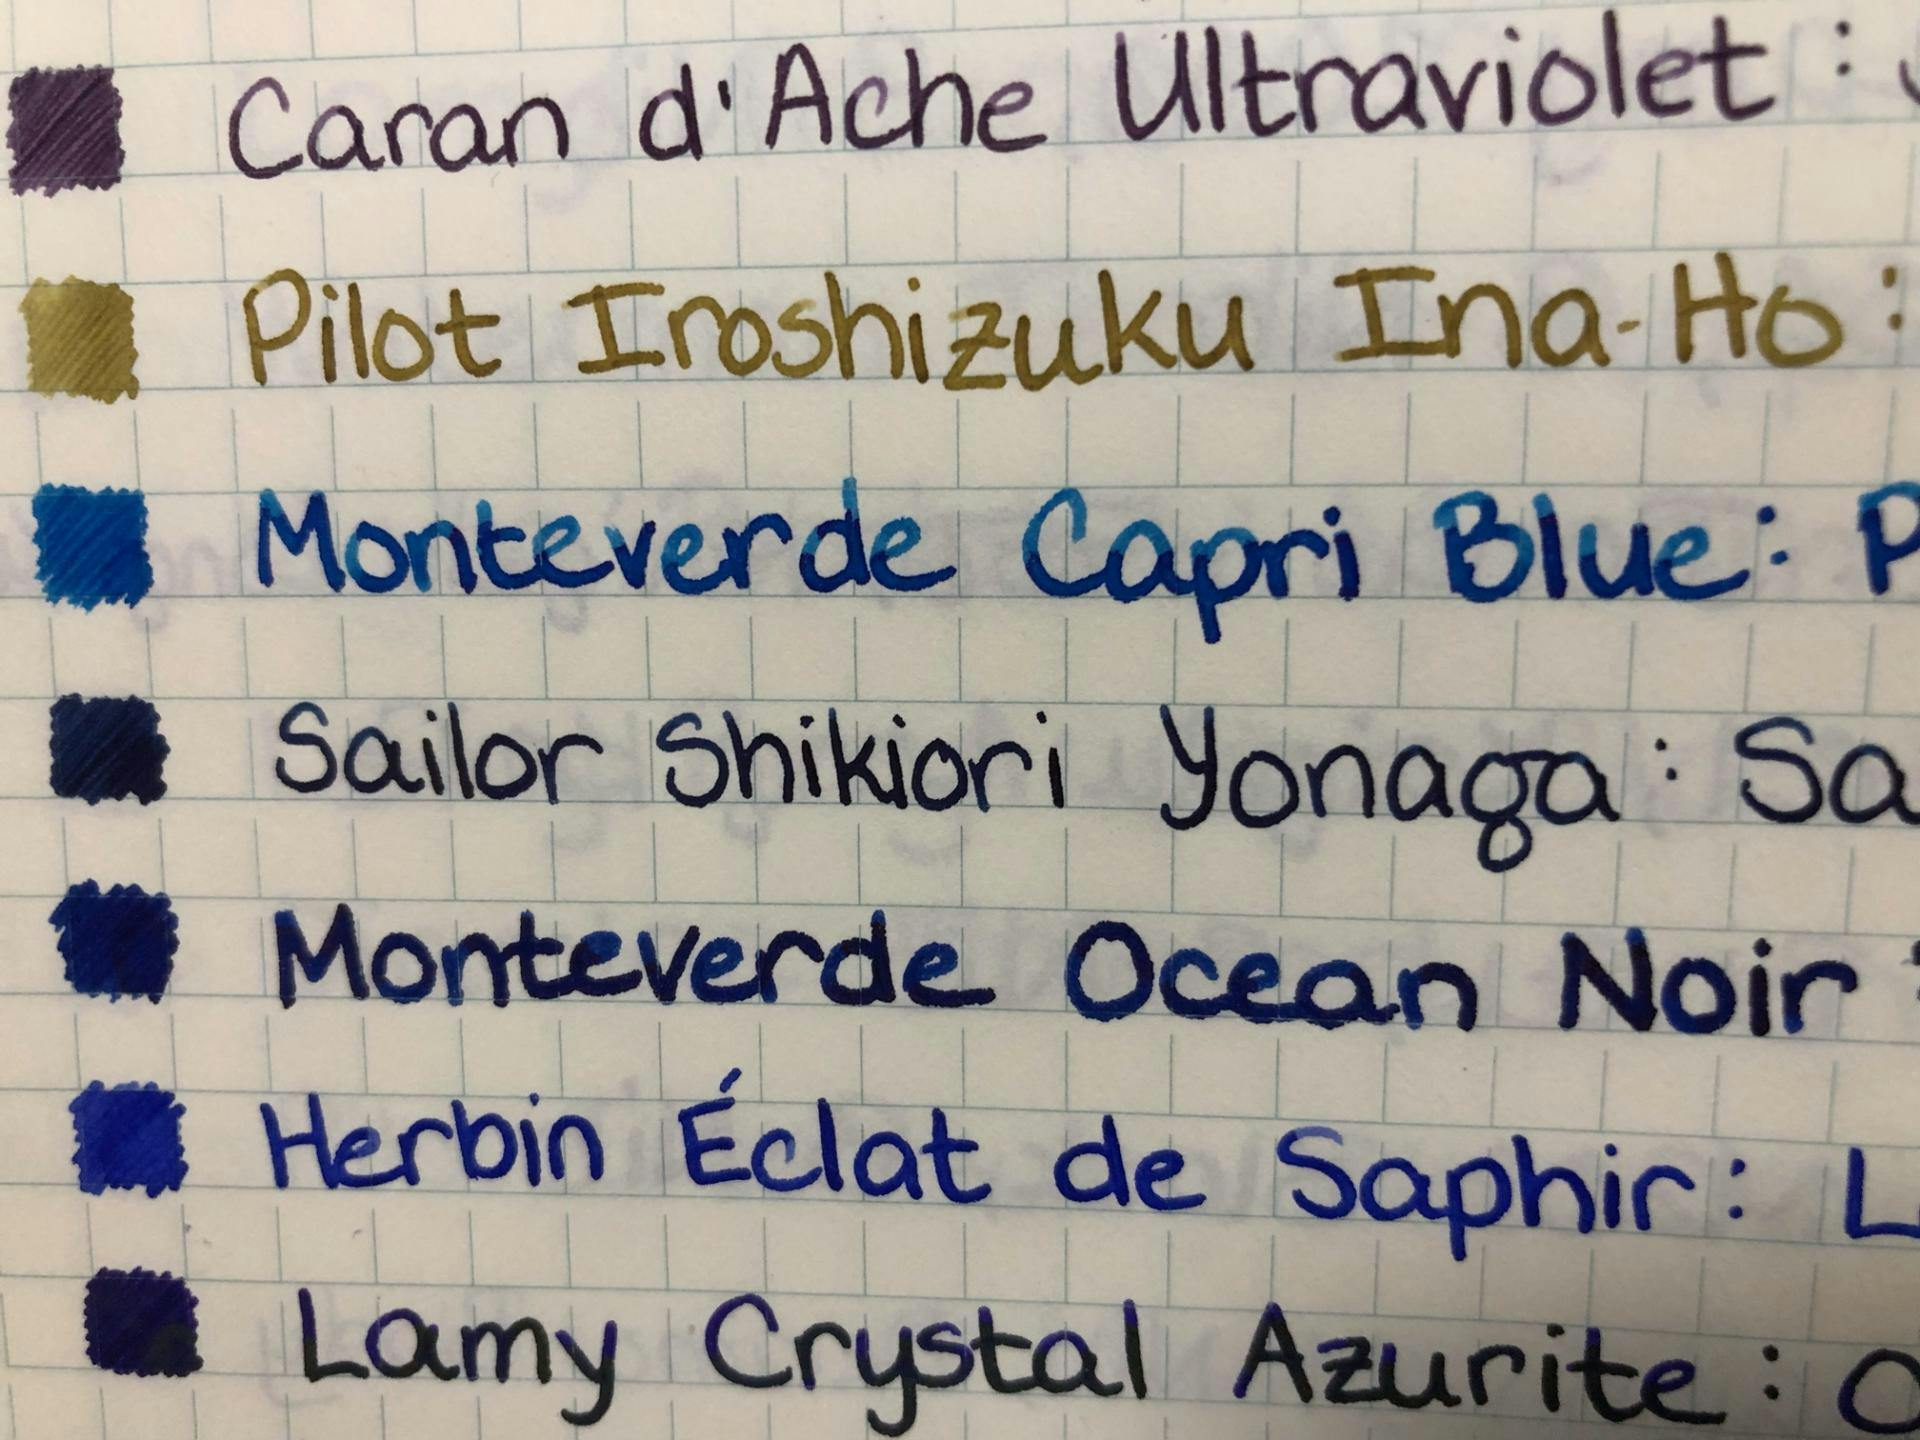 Caran d'Ache Ultraviolet :
Pilot Iroshizuku Ina-Ho :
Monteverde Capri Blue : P
Sailor Shikiori Yonaga : Sa
Monteverde Ocean Noir :
Herbin Éclat de Saphir : L
Lamy Crystal Azurite :